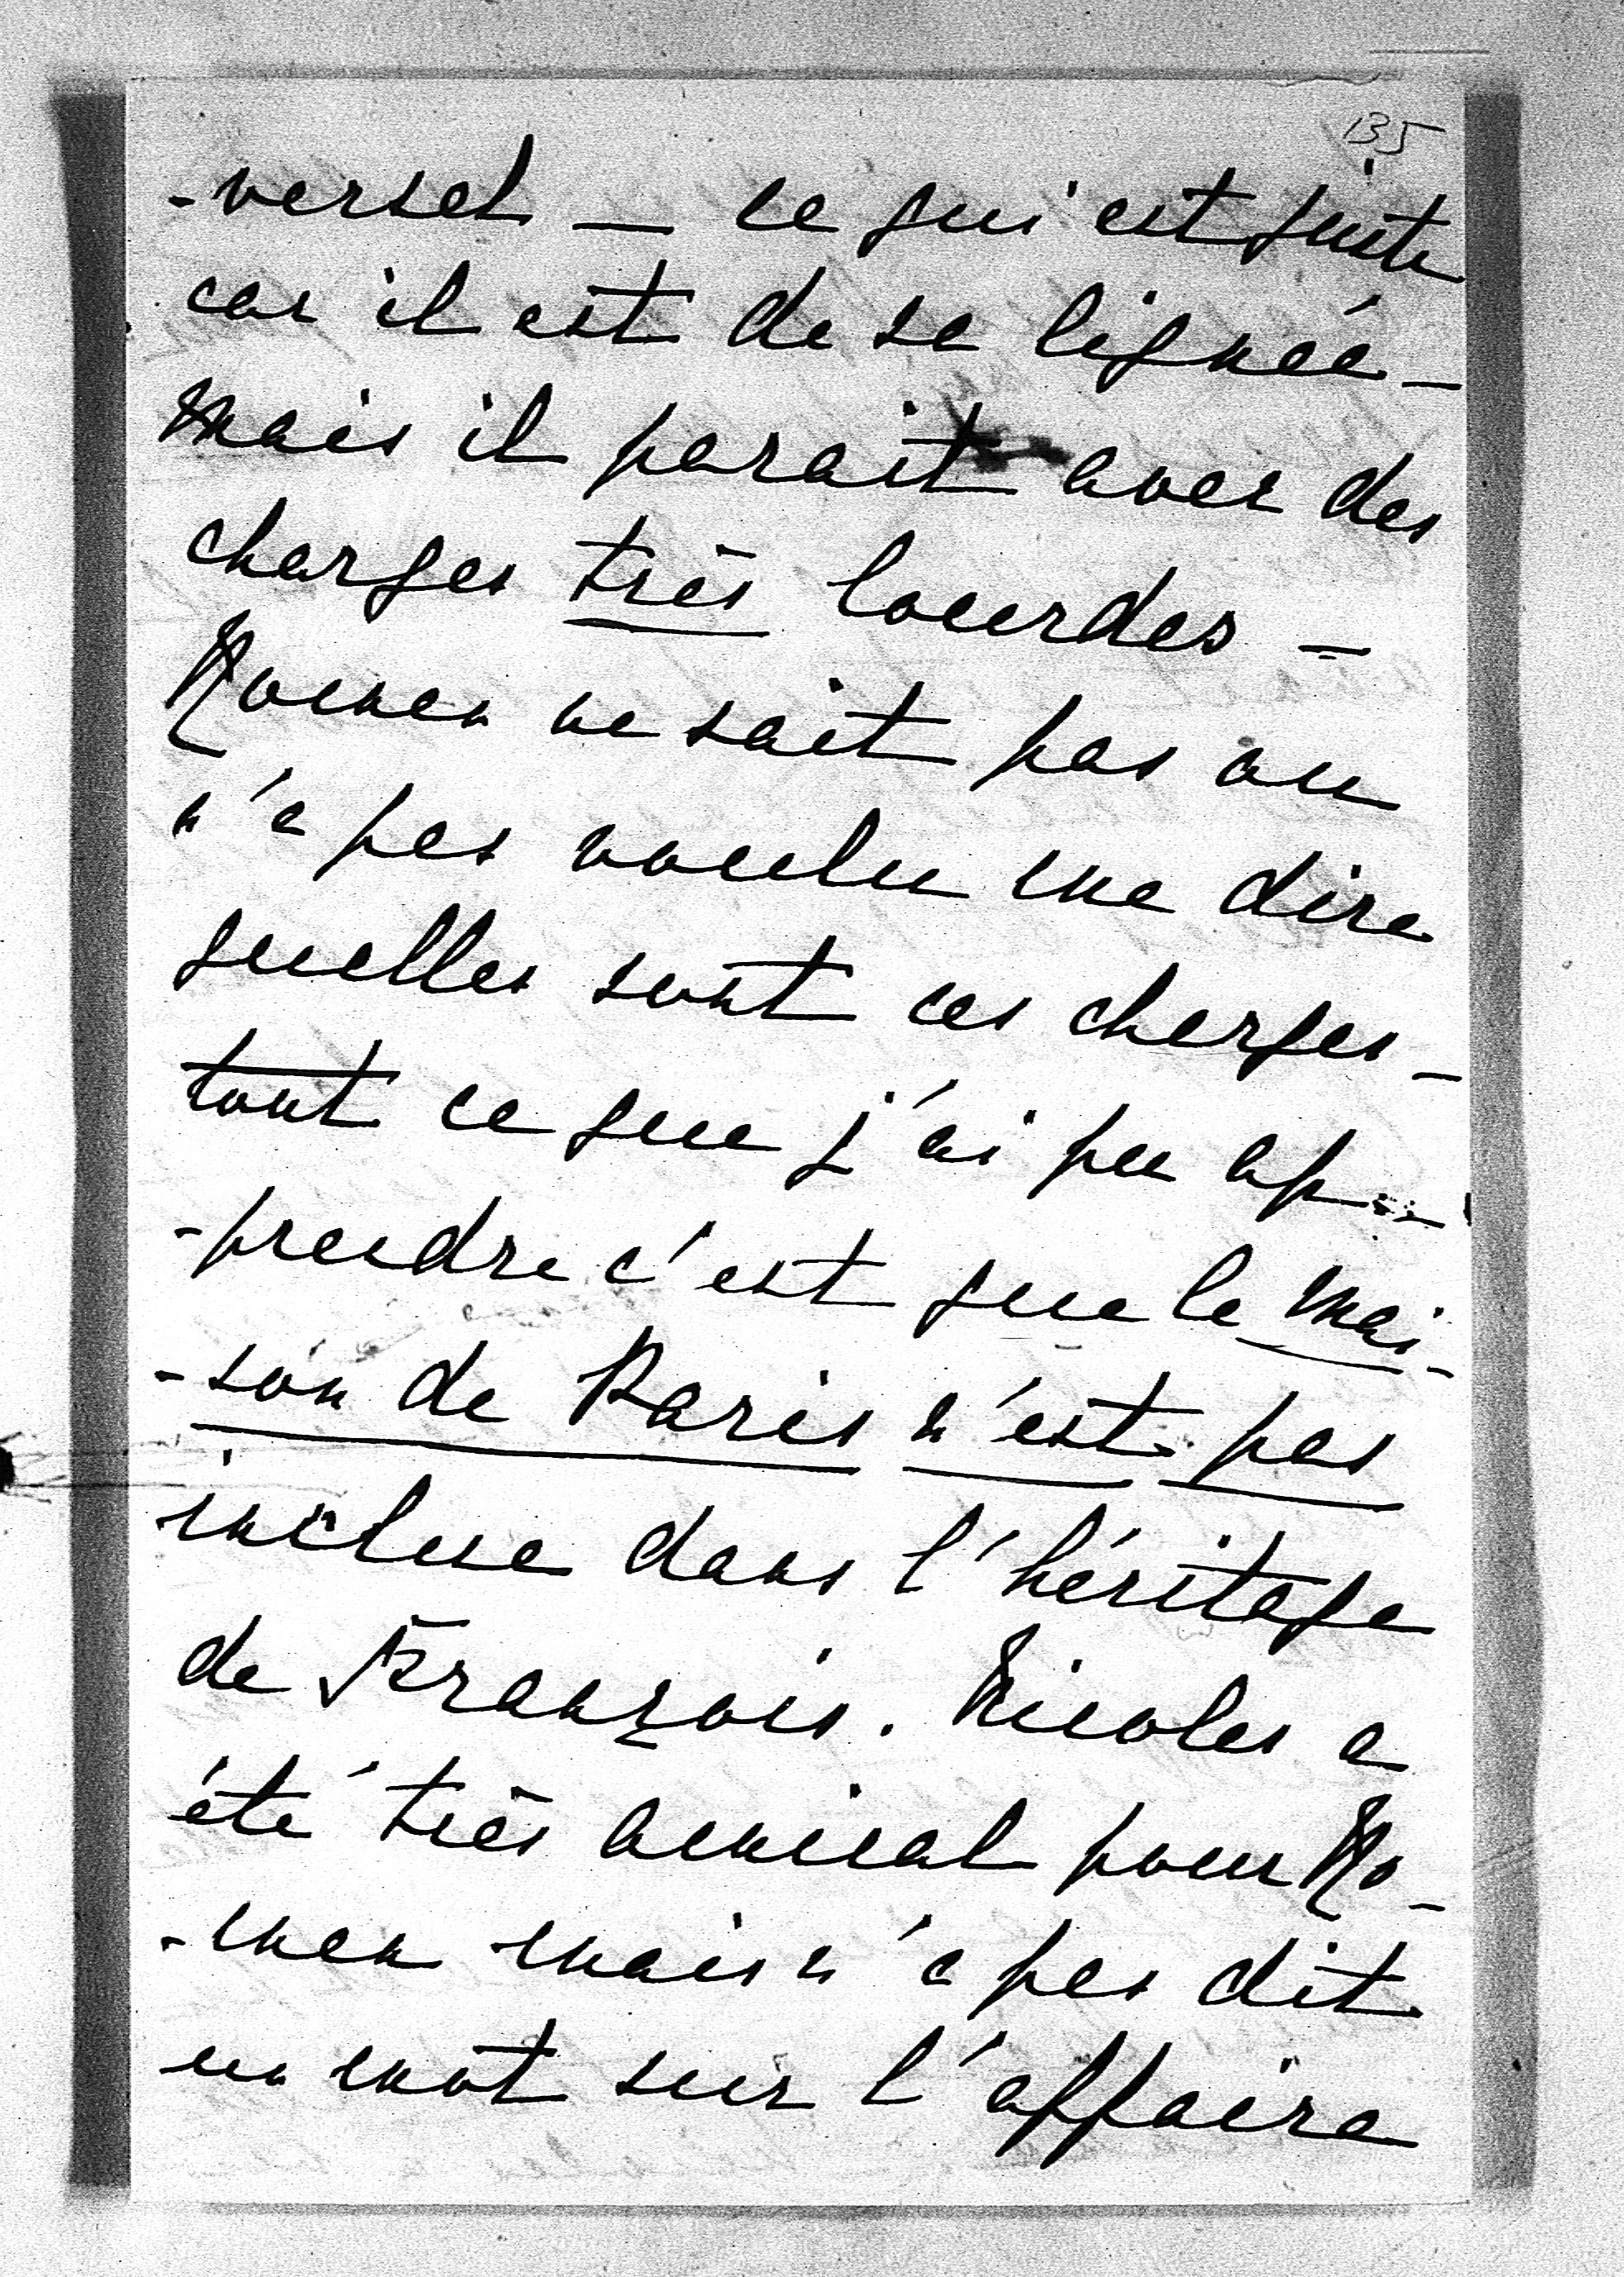 135
-versel — ce qui est juste
car il est de sa lignée —
mais il parait avec des
charges très lourdes —
Nomen ne sait pas ou
n'a pas voulu me dire
quelles sont ces charges —
tout ce que j'ai pu ap-
-prendre c'est que la mai-
-son de Paris n'est pas
inclue dans l'héritage
de François. Nicolas a
été très amical pour No-
-men mais n'a pas dit
un mot sur l'affaire